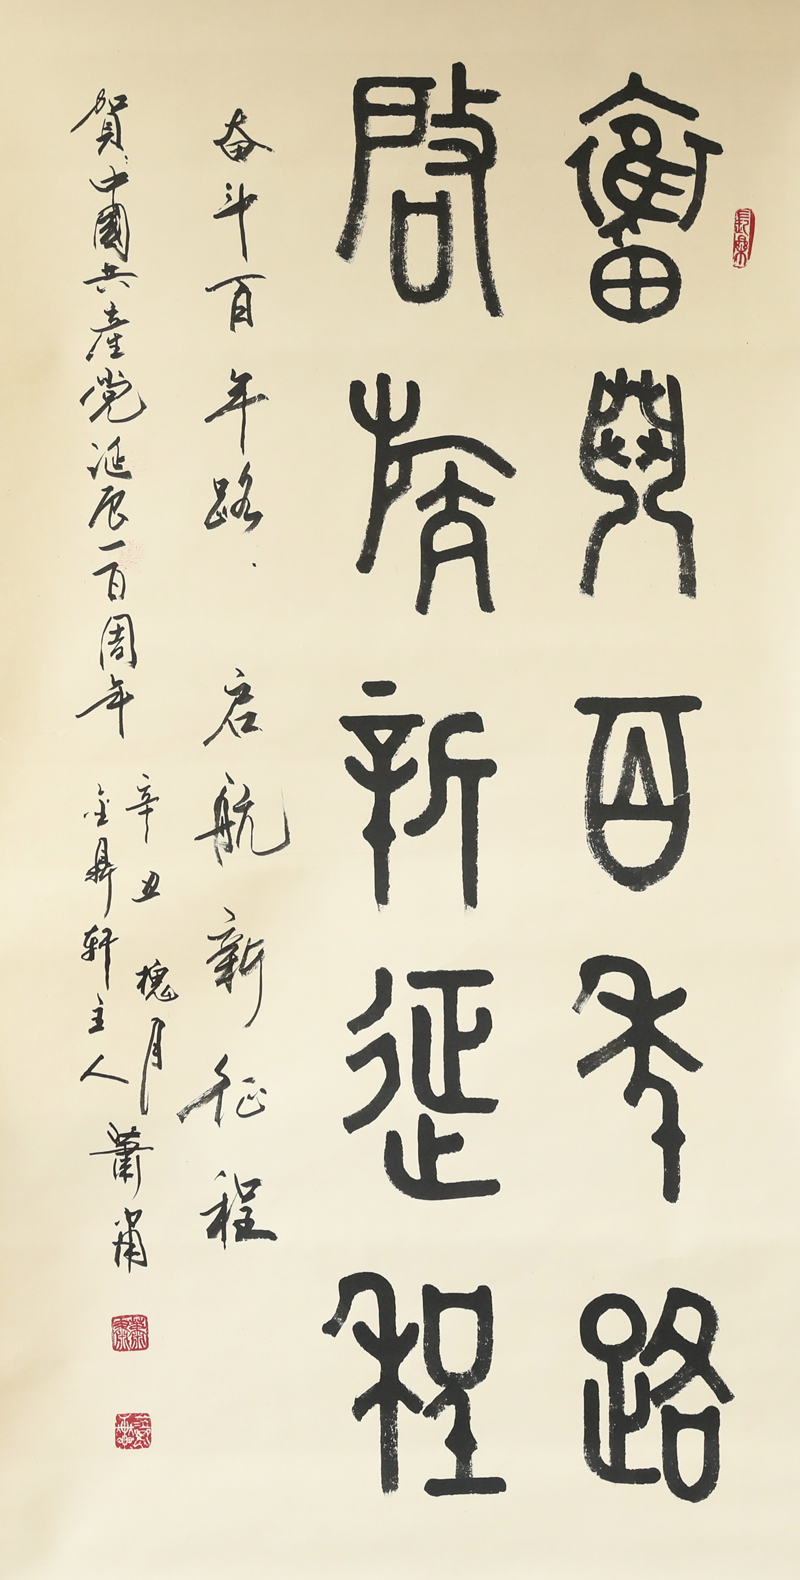 奮鬥百年路
啟航新征程
奋斗百年路.
启航新征程
賀中國共產党诞辰一百周年
辛丑槐月
金鼎轩主人
蕭肅